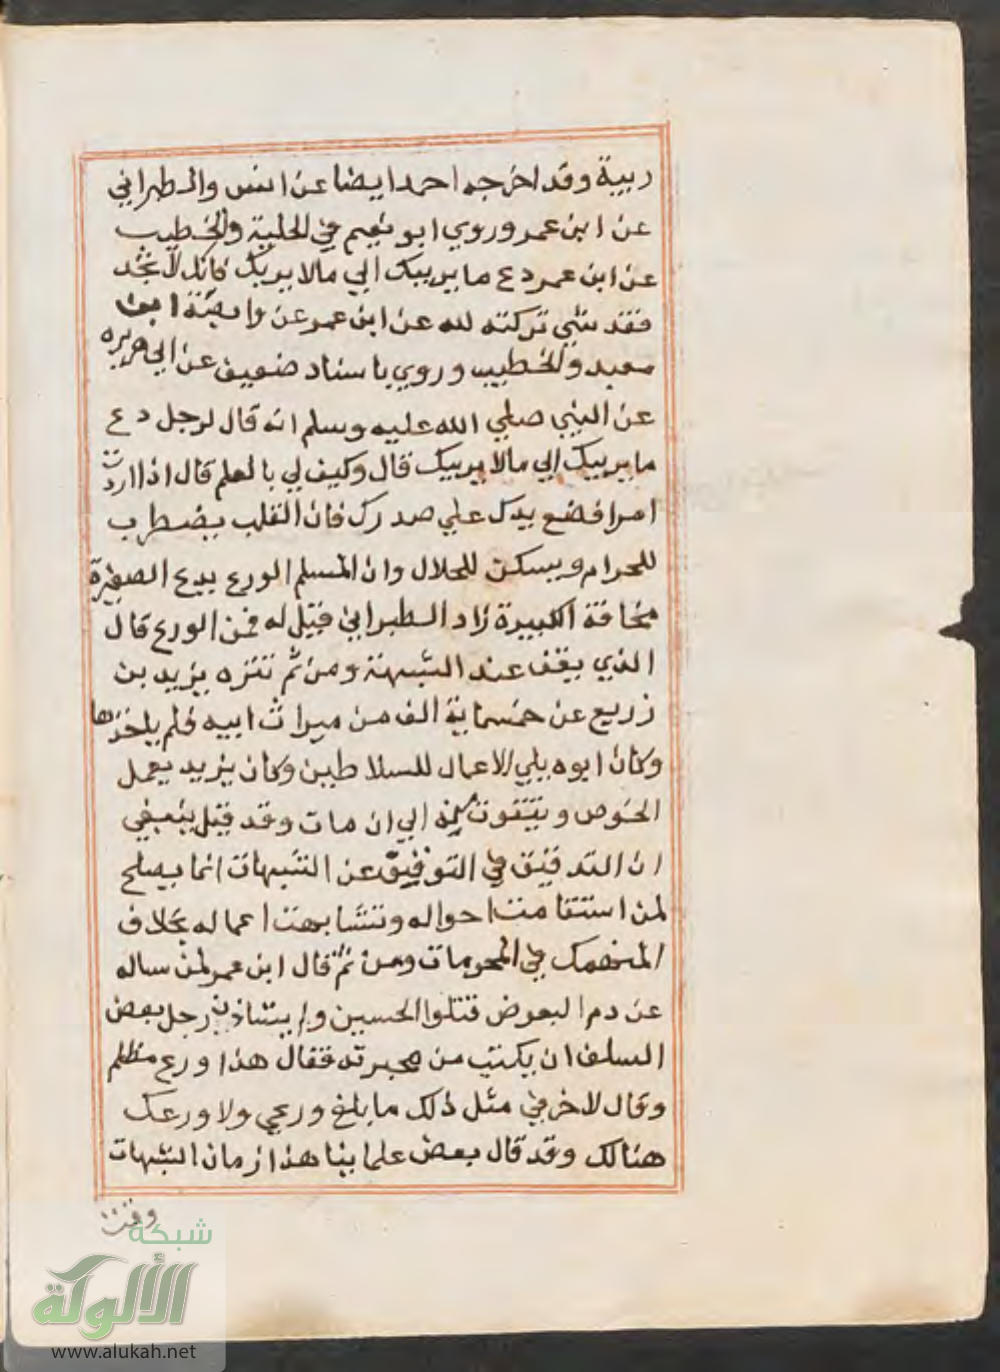 ريبة وقد اخرجه احمد ايضا عن انس والطبراني
عن ابن عمر وروي ابو نعيم في الحلية والخطيب
عن ابن عمر دع ما يريبك الي مالا يريبك فانك لا تجد
فقد شئ تركته لله عن ابن عمر عن وابصة ابن
معبد والخطيب وروي باسناد ضعيف عن ابي هريره
عن النبي صلي الله عليه وسلم انه قال لرجل دع
ما يريبك الي مالا يريبك قال وكيف لي بالعلم قال اذا اردت
امرا فضع يدك علي صدرك فان القلب يضطرب
للحرام ويسكن للحلال وان المسلم الورع يدع الصغيرة
مخافة الكبيرة زاد الطبراني فقيل له فمن الورع قال
الذي يقف عند الشبهة ومن ثم تنزه يزيد بن
زريع عن خمسماية الف من ميراث ابيه فلم ياخذها
وكان ابوه يلي الاعمال للسلاطين وكان يزيد يعمل
الخوص ويتقوت منه الي ان مات وقد قيل ينبغي
ان التدقيق في التوفيق عن الشبهات انما يصلح
لمن استقامت احواله وتشابهت اعماله بخلاف
المنهمك في المحرمات ومن ثم قال ابن عمر لمن ساله
عن دم البعوض قتلوا الحسين واستاذن رجل بعض
السلف ان يكتب من محبرته فقال هذا ورع مظلم
وقال لاخر في مثل ذلك ما بلغ ورعي ولا ورعك
هنالك وقد قال بعض علماينا هذا زمان الشبهات
وقت
شبكة
الألوكة
www.alukah.net